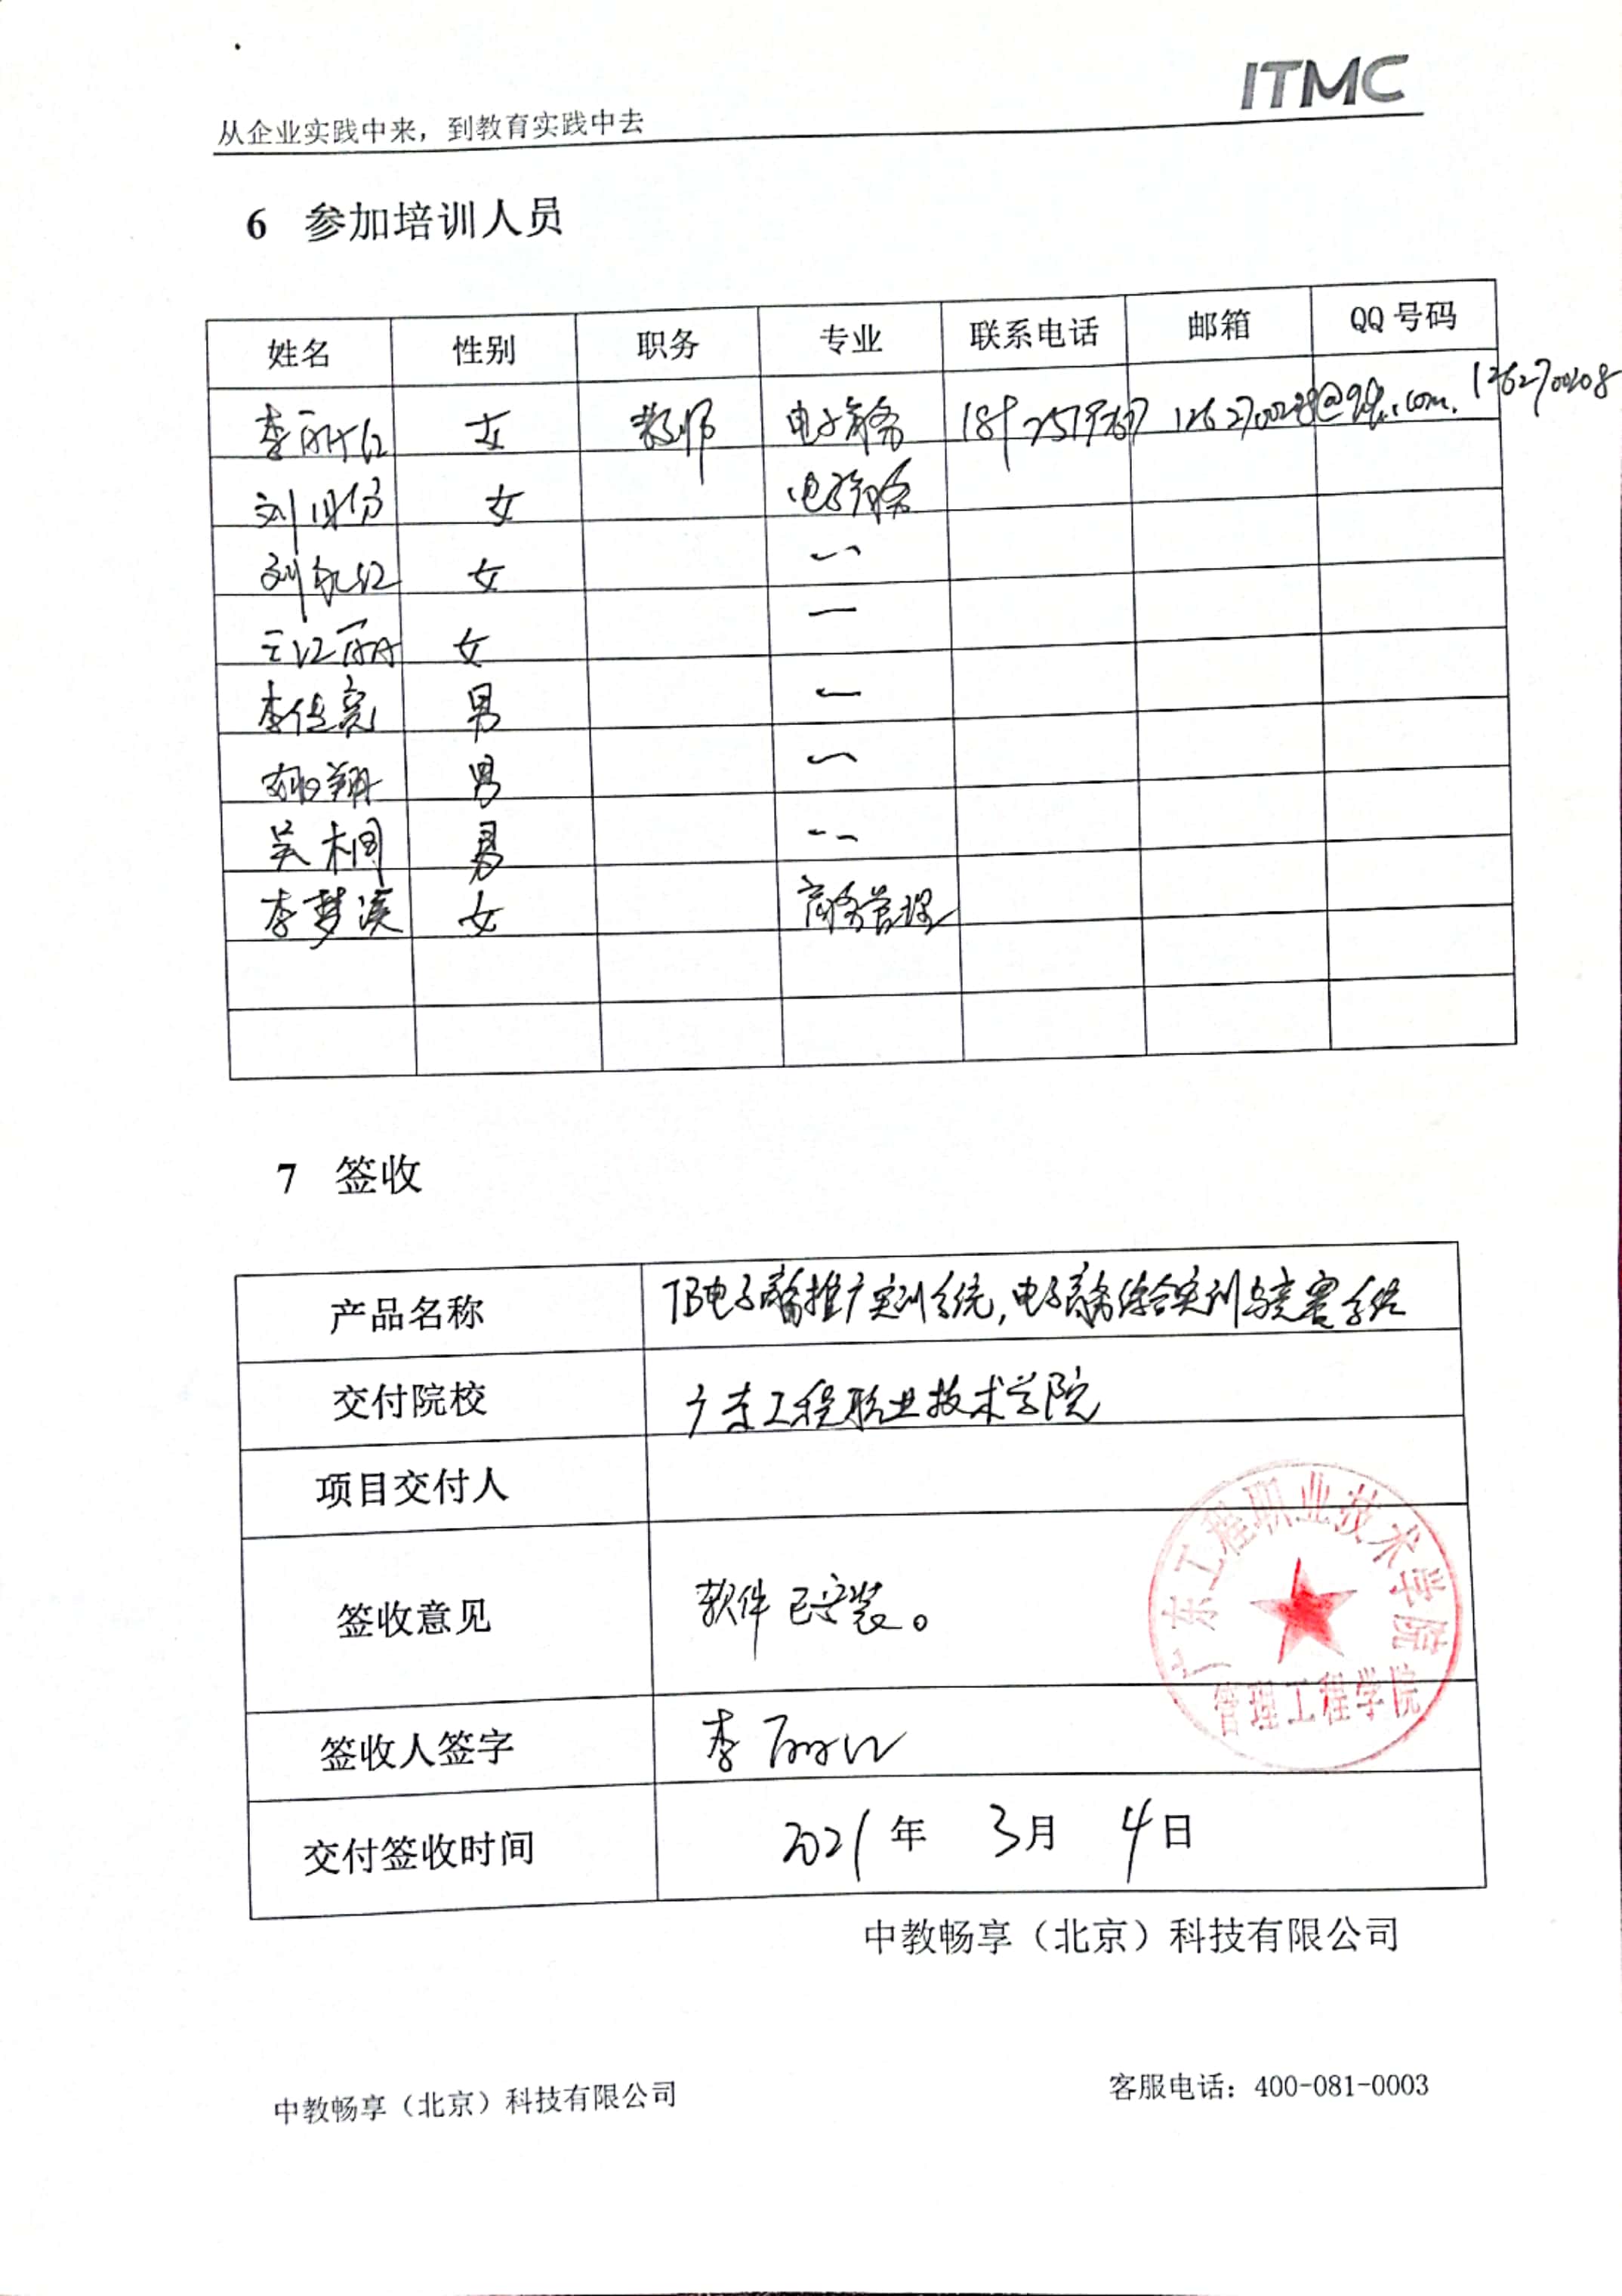 ITMC
从企业实践中来，到教育实践中去
6 参加培训人员
姓名 性别 职务 专业 联系电话 邮箱 QQ号码
李丽红 女 教师 电子商务
刘 女 电子商务
刘 红 女
王红丽 女
李俊亮 男
翔 男
吴桐 男
李梦溪 女 商务管理
7 签收
产品名称 TB电子商务推广实训系统,电子商务综合实训与竞赛系统
交付院校 广东工程职业技术学院
项目交付人
签收意见 软件已安装。
广东工程职业技术学院
管理工程学院
签收人签字 李丽红
交付签收时间 2021年 3月 4日
中教畅享（北京）科技有限公司
中教畅享（北京）科技有限公司 客服电话：400-081-0003